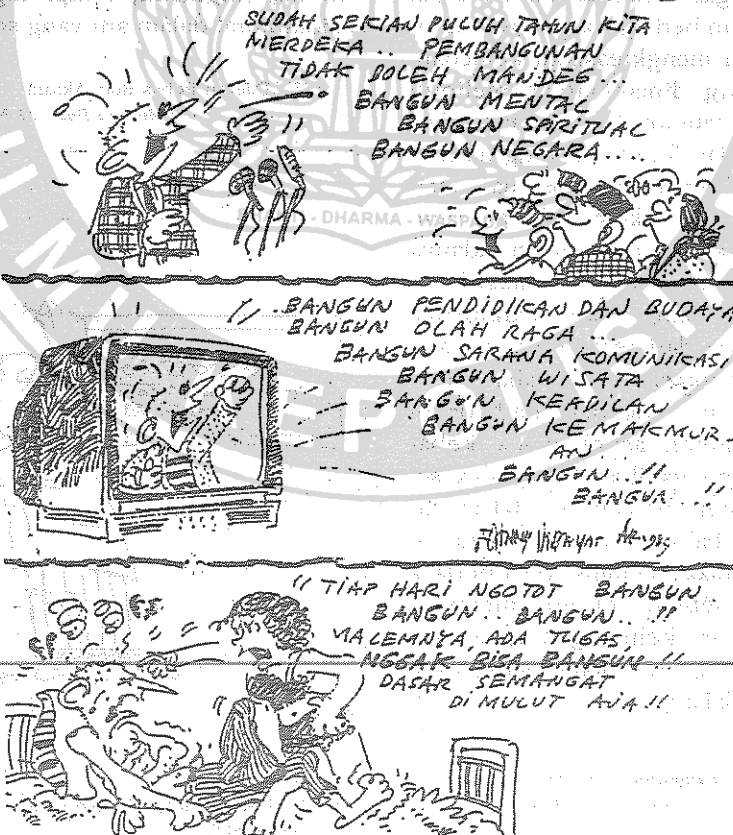 SUDAH SEKIAN PULUH TAHUN KITA
MERDEKA .. PEMBANGUNAN
TIDAK BOLEH MANDEG...
BANGUN MENTAL
BANGUN SPIRITUAL
BANGUN NEGARA....
- DHARMA - WASPADA
BANGUN PENDIDIKAN DAN BUDAYA
BANGUN OLAH RAGA ...
BANGUN SARANA KOMUNIKASI
BANGUN WISATA ..
BANGUN KEADILAN
BANGUN KEMAKMUR_
AN
BANGUN ..!!
BANGUN ..!!
" TIAP HARI NGOTOT BANGUN.
BANGUN.. BANGUN.. !!
MALEMNYA, ADA TUGAS,
NGGAK BISA BANGUN !!
DASAR SEMANGAT
DI MULUT AJA !!